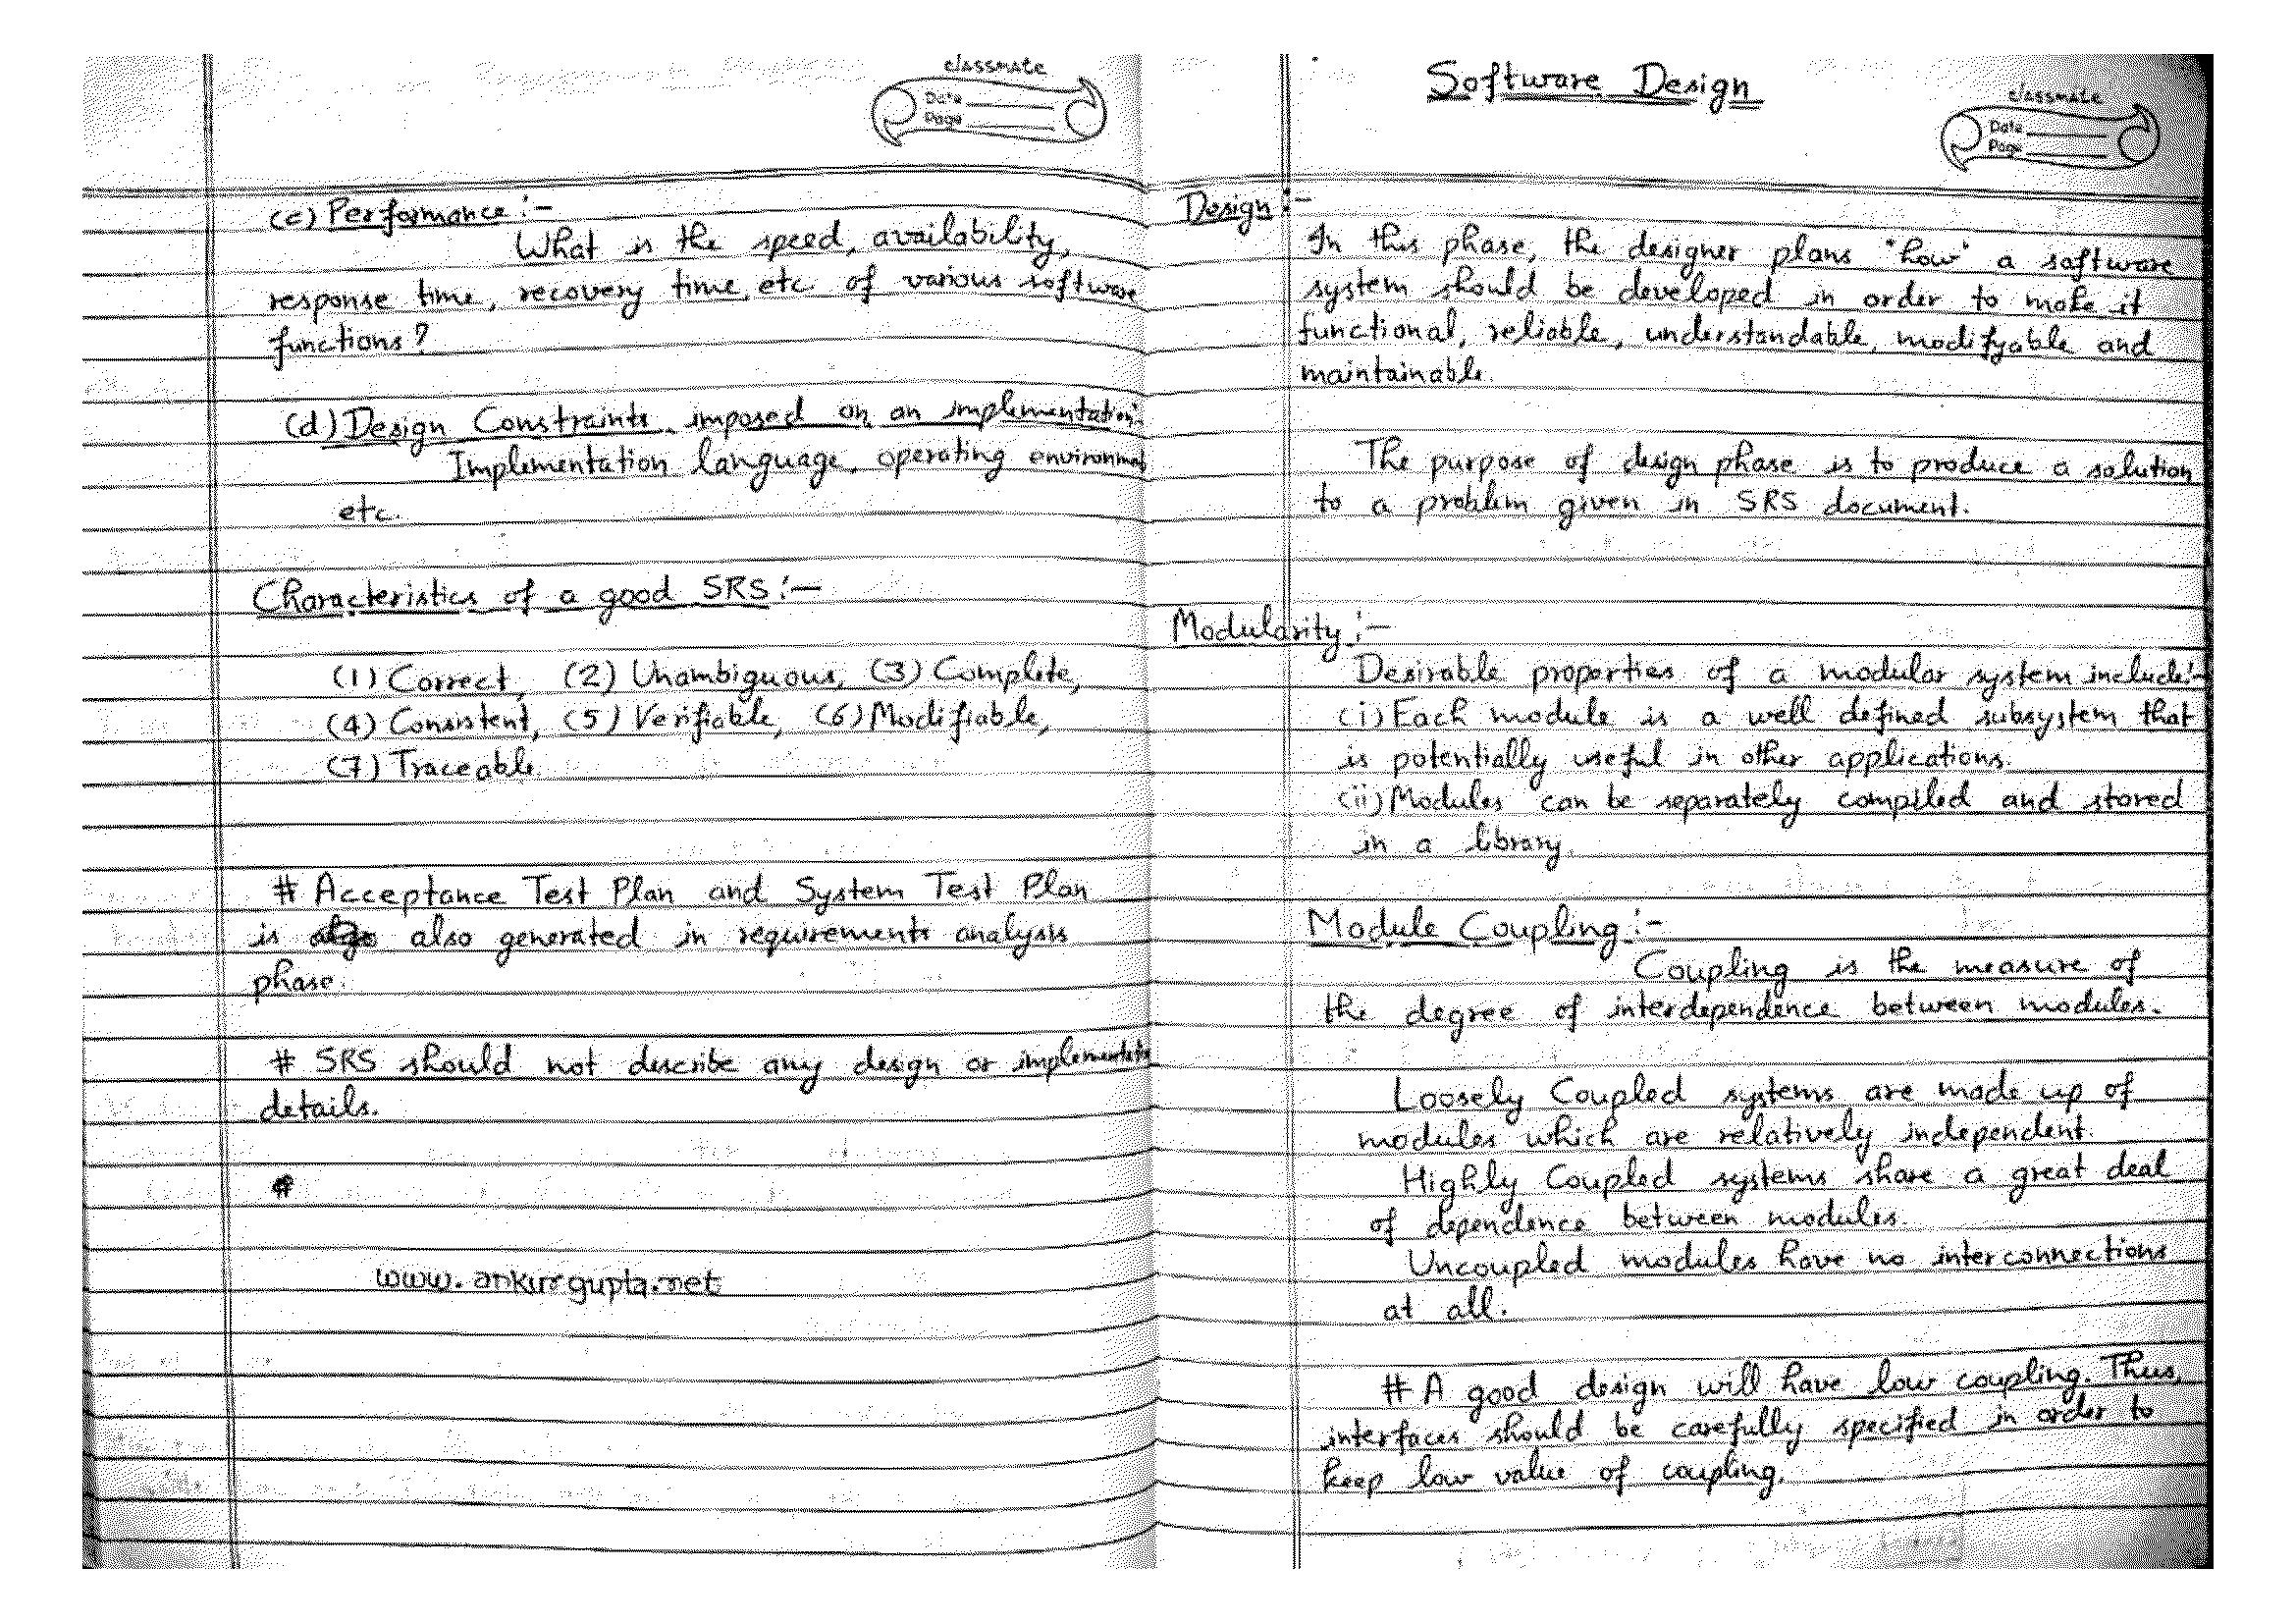 classmate
Date
Page
(c) Performance :-
What is the speed, availability,
response time, recovery time, etc. of various software
functions?
(d) Design Constraints imposed on an implementation:
Implementation language, operating environment
etc.
Characteristics of a good SRS :-
(1) Correct, (2) Unambiguous, (3) Complete,
(4) Consistent, (5) Verifiable, (6) Modifiable,
(7) Traceable.
# Acceptance Test Plan and System Test Plan
is also generated in requirements analysis
phase.
# SRS should not describe any design or
details.
#
www.ankurgupta.net
Software Design
classmate
Date
Page
Design :-
In this phase, the designer plans "how" a software
system should be developed in order to make it
functional, reliable, understandable, modifyable and
maintainable.
The purpose of design phase is to produce a solution
to a problem given in SRS document.
Modularity :-
Desirable properties of a modular system include:-
(i) Each module is a well defined subsystem that
is potentially useful in other applications.
(ii) Modules can be separately compiled and stored
in a library.
Module Coupling :-
Coupling is the measure of
the degree of interdependence between modules.
Loosely Coupled systems are made up of
modules which are relatively independent.
Highly Coupled systems share a great deal
of dependence between modules.
Uncoupled modules have no interconnections
at all.
# A good design will have low coupling. Thus,
interfaces should be carefully specified in order to
keep low value of coupling.